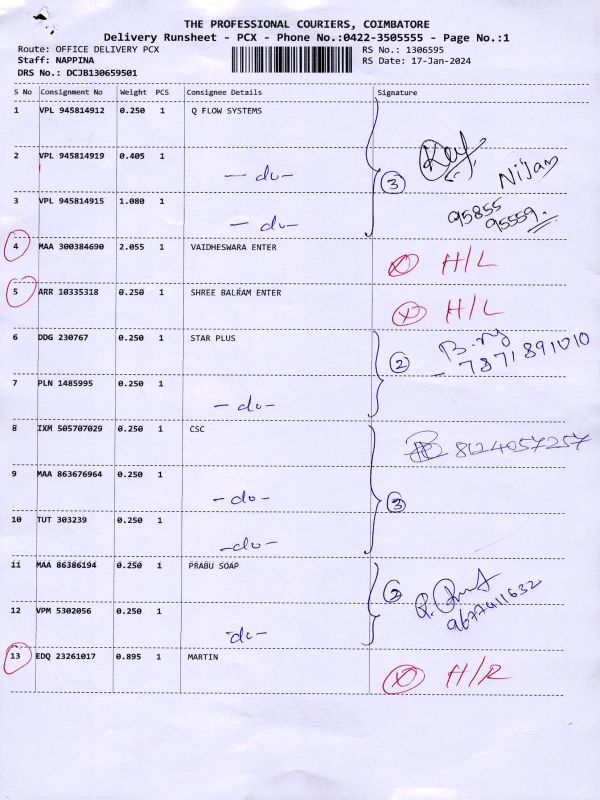 THE PROFESSIONAL COURIERS, COIMBATORE
Delivery Runsheet - PCX - Phone No.:0422-3505555 - Page No.:1
Route: OFFICE DELIVERY PCX RS No.: 1306595
Staff: NAPPINA RS Date: 17-Jan-2024
DRS No.: DCJB130659501
S No Consignment No Weight PCS Consignee Details Signature
1 VPL 945814912 0.250 1 Q FLOW SYSTEMS
2 VPL 945814919 0.405 1 -do- 3 Nijam
3 VPL 945814915 1.080 1 -do- 95855
95559
4 MAA 300384690 2.055 1 VAIDHESWARA ENTER X H/L
5 ARR 10335318 0.250 1 SHREE BALRAM ENTER X H/L
6 DDG 230767 0.250 1 STAR PLUS 2 7871891010
7 PLN 1485995 0.250 1 -do-
8 IXM 505707029 0.250 1 CSC 8124057257
9 MAA 863676964 0.250 1 -do- 3
10 TUT 303239 0.250 1 -do-
11 MAA 86386194 0.250 1 PRABU SOAP 2 9677411632
12 VPM 5302056 0.250 1 -do-
13 EDQ 23261017 0.895 1 MARTIN X H/R